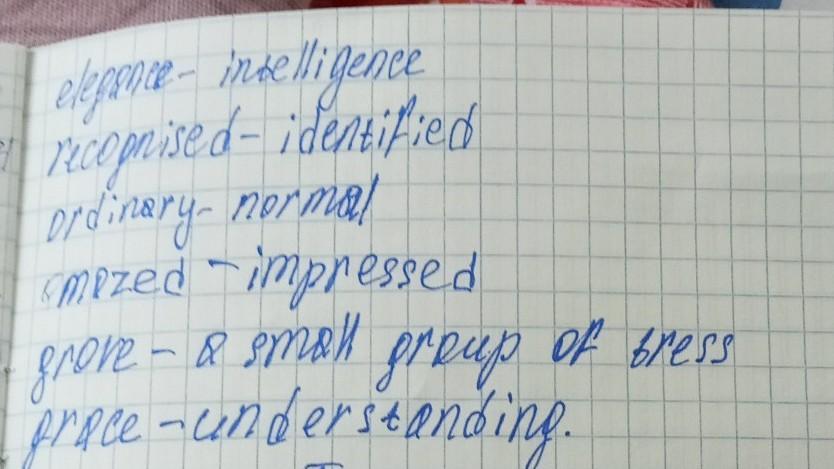 elegance- intelligence
recognised- identified
ordinary- normal
amazed - impressed
grove - a small group of tress
grace - understanding.